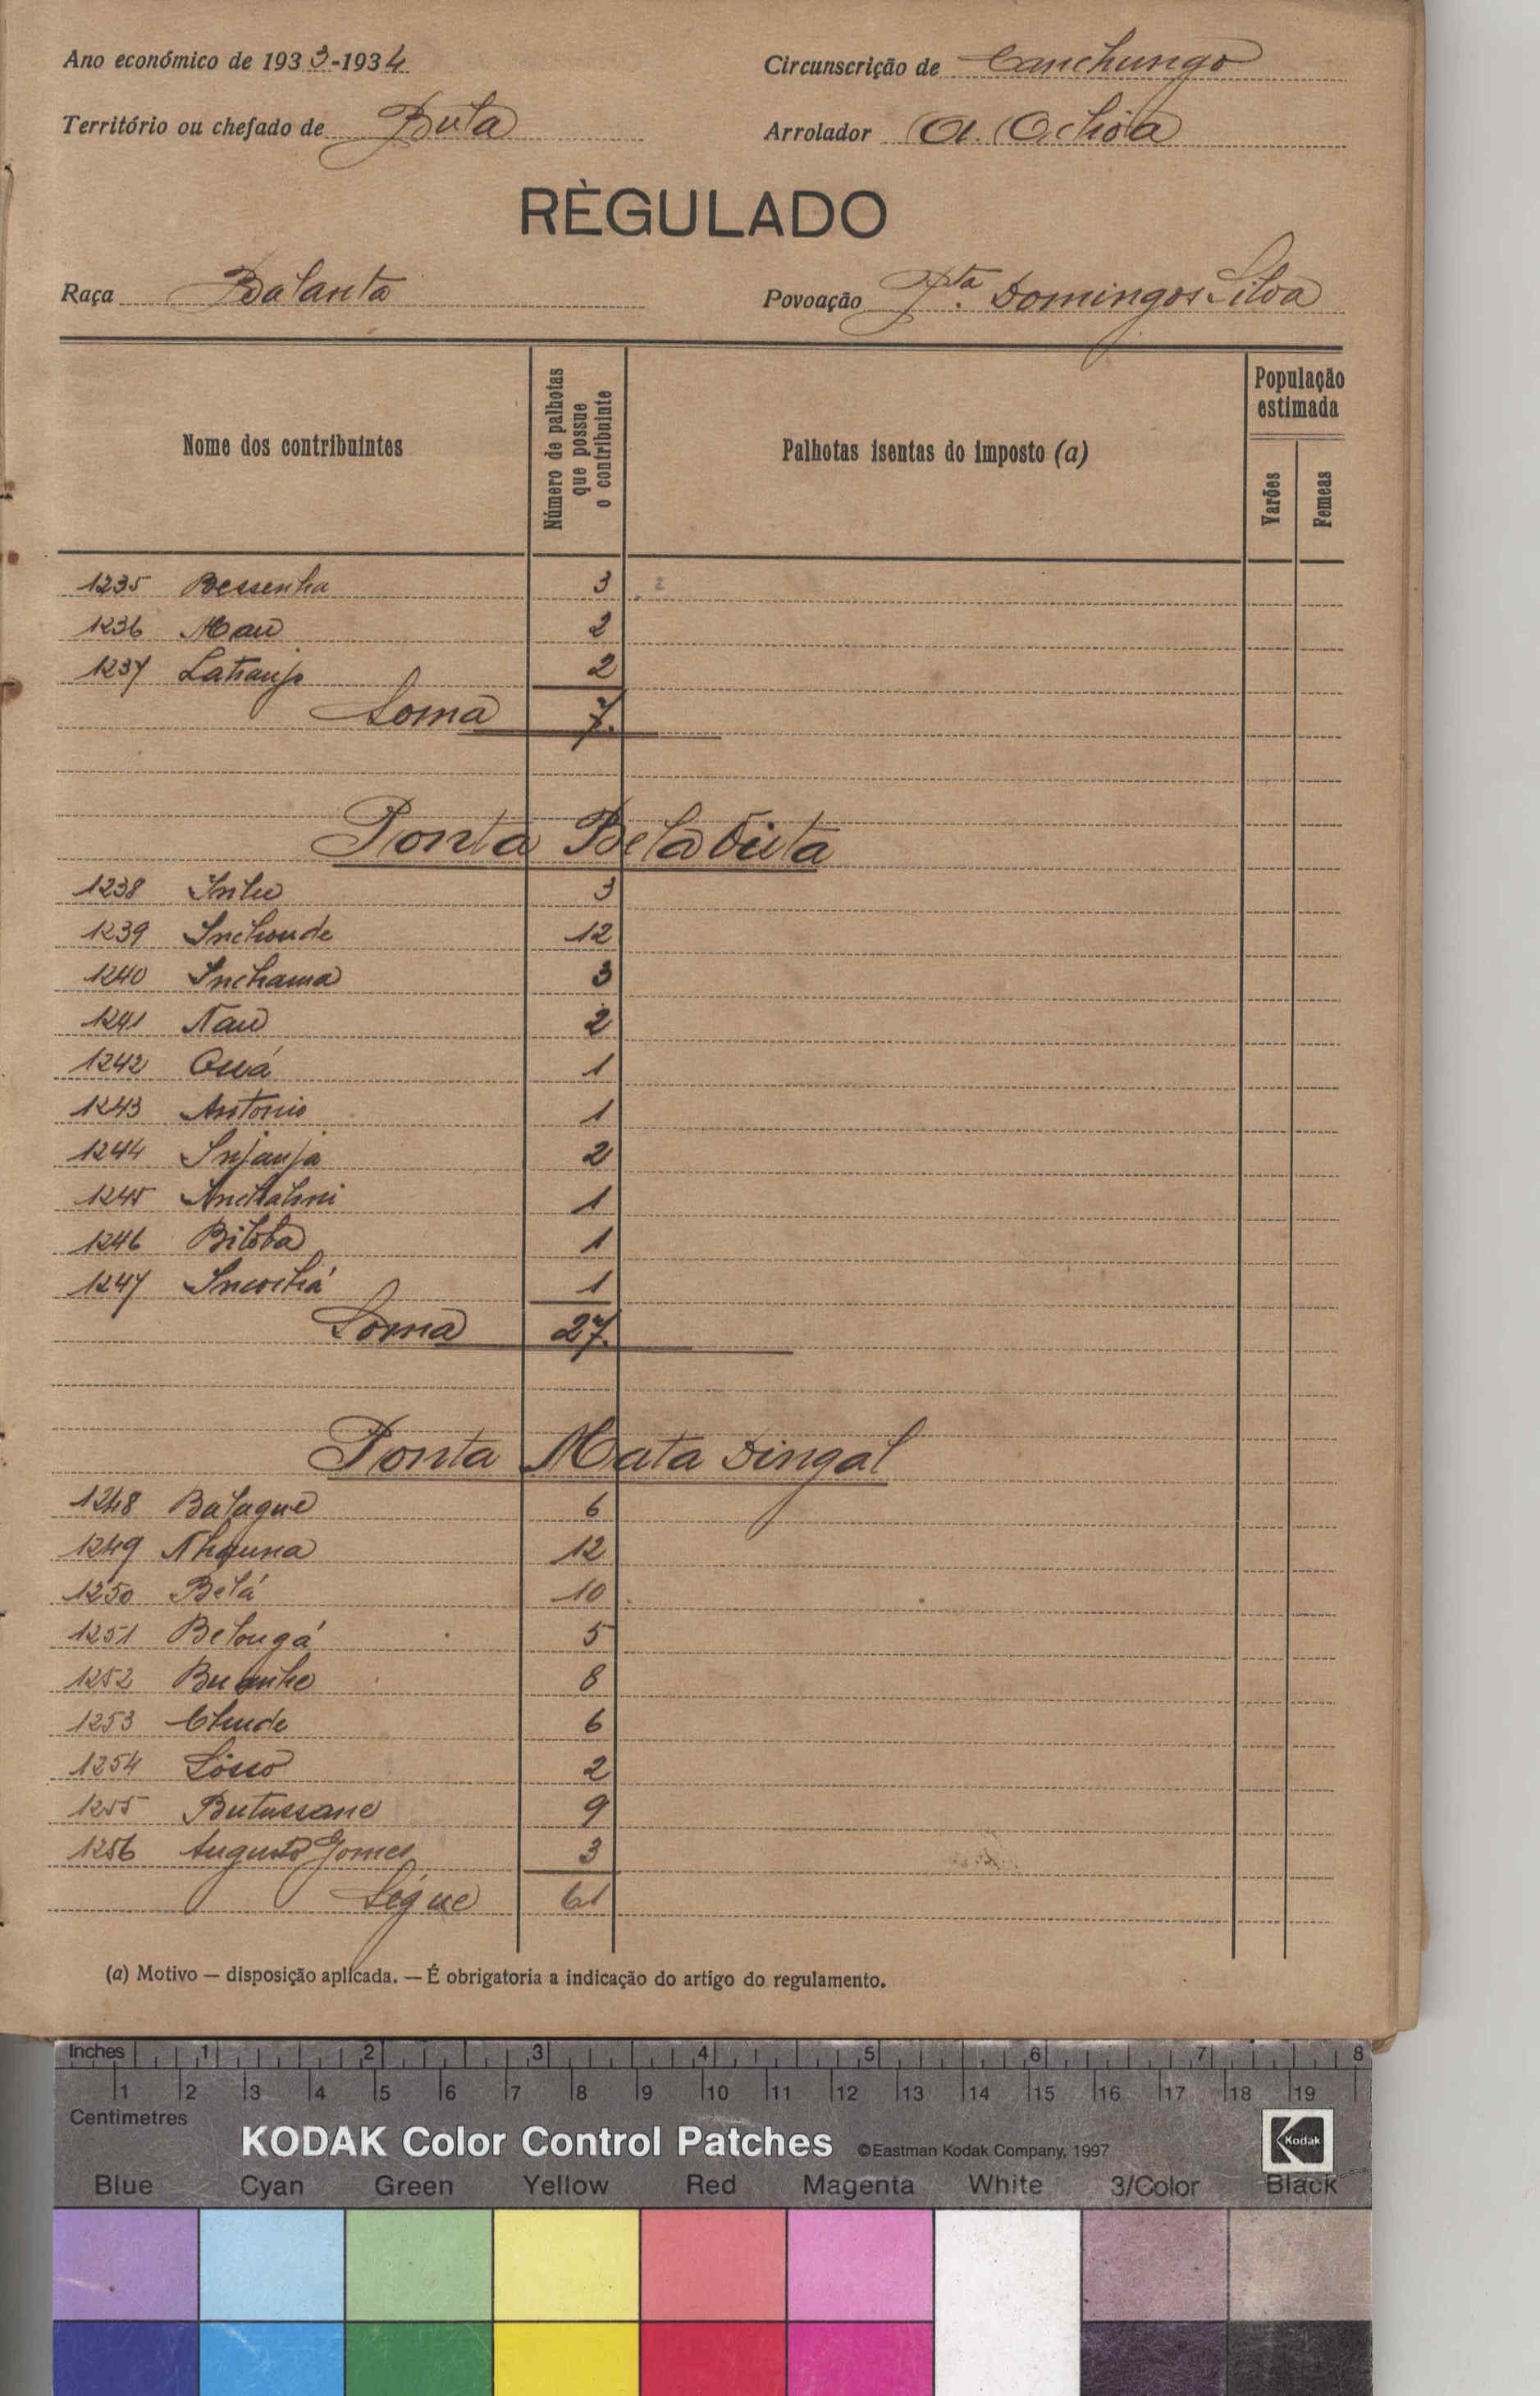 Ano económico de 1933-1934
Circunscrição de Canchungo
Território ou chefado de Bula
Arrolador A. Ochôa
RÈGULADO
Raça Balanta
Povoação Pta. Domingos Silva
Nome dos contribuintes
Número de palhotas que possue o contribuinte
Palhotas isentas do imposto (a)
População estimada
Varões
Femeas
1235 Bessenha 3 2
1236 Mau 2
1237 2
Soma 7.
Ponta Bela Vista
1238 3
1239 Inchonde 12
1240 Inchama 3
1241 Nau 2
1242 1
1243 Antonio 1
1244 Injanja 2
1245 1
1246 Bilóba 1
1247 1
Soma 27.
Ponta Mata Dingal
1248 Balague 6
1249 Nhauna 12
1250 Belá 10
1251 Belongá 5
1252 8
1253 6
1254 Lósso 2
1255 Butassane 9
1256 Augusto Gomes 3
Ségue 61
(a) Motivo — disposição aplicada. — É obrigatoria a indicação do artigo do regulamento.
Inches 1 2 3 4 5 6 7 8
1 2 3 4 5 6 7 8 9 10 11 12 13 14 15 16 17 18 19
Centimetres
KODAK Color Control Patches ©Eastman Kodak Company, 1997 Kodak
Blue Cyan Green Yellow Red Magenta White 3/Color Black